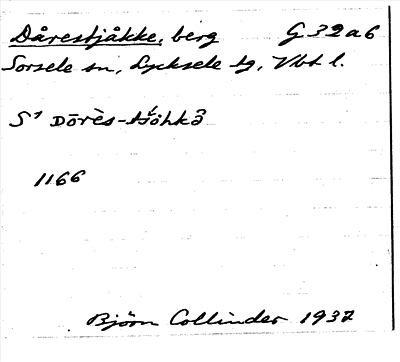 Dårestjåkke, berg G 32 a 6
Sorsele sn, Lycksele tg, Vbt l.
S¹ Dōrès-tjåhkå
1166
Björn Collinder 1937